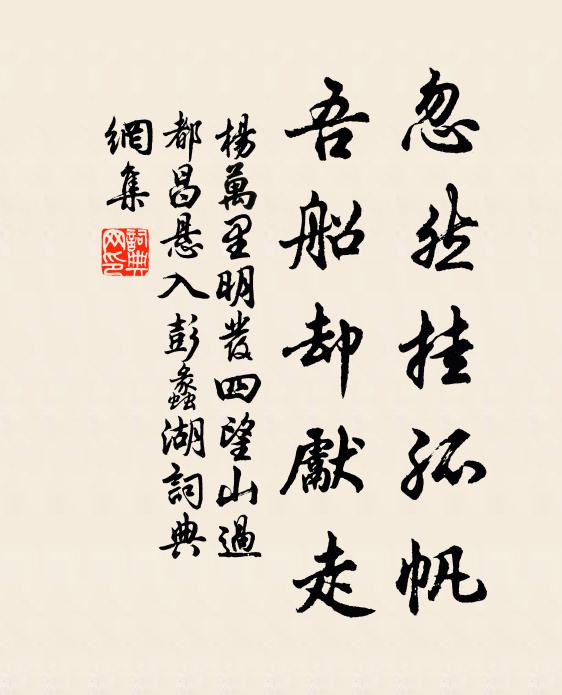 忽然挂孤帆
吾船却獻走
楊萬里明發四望山過
都昌悬入彭蠡湖詞典
網集
詞典網印